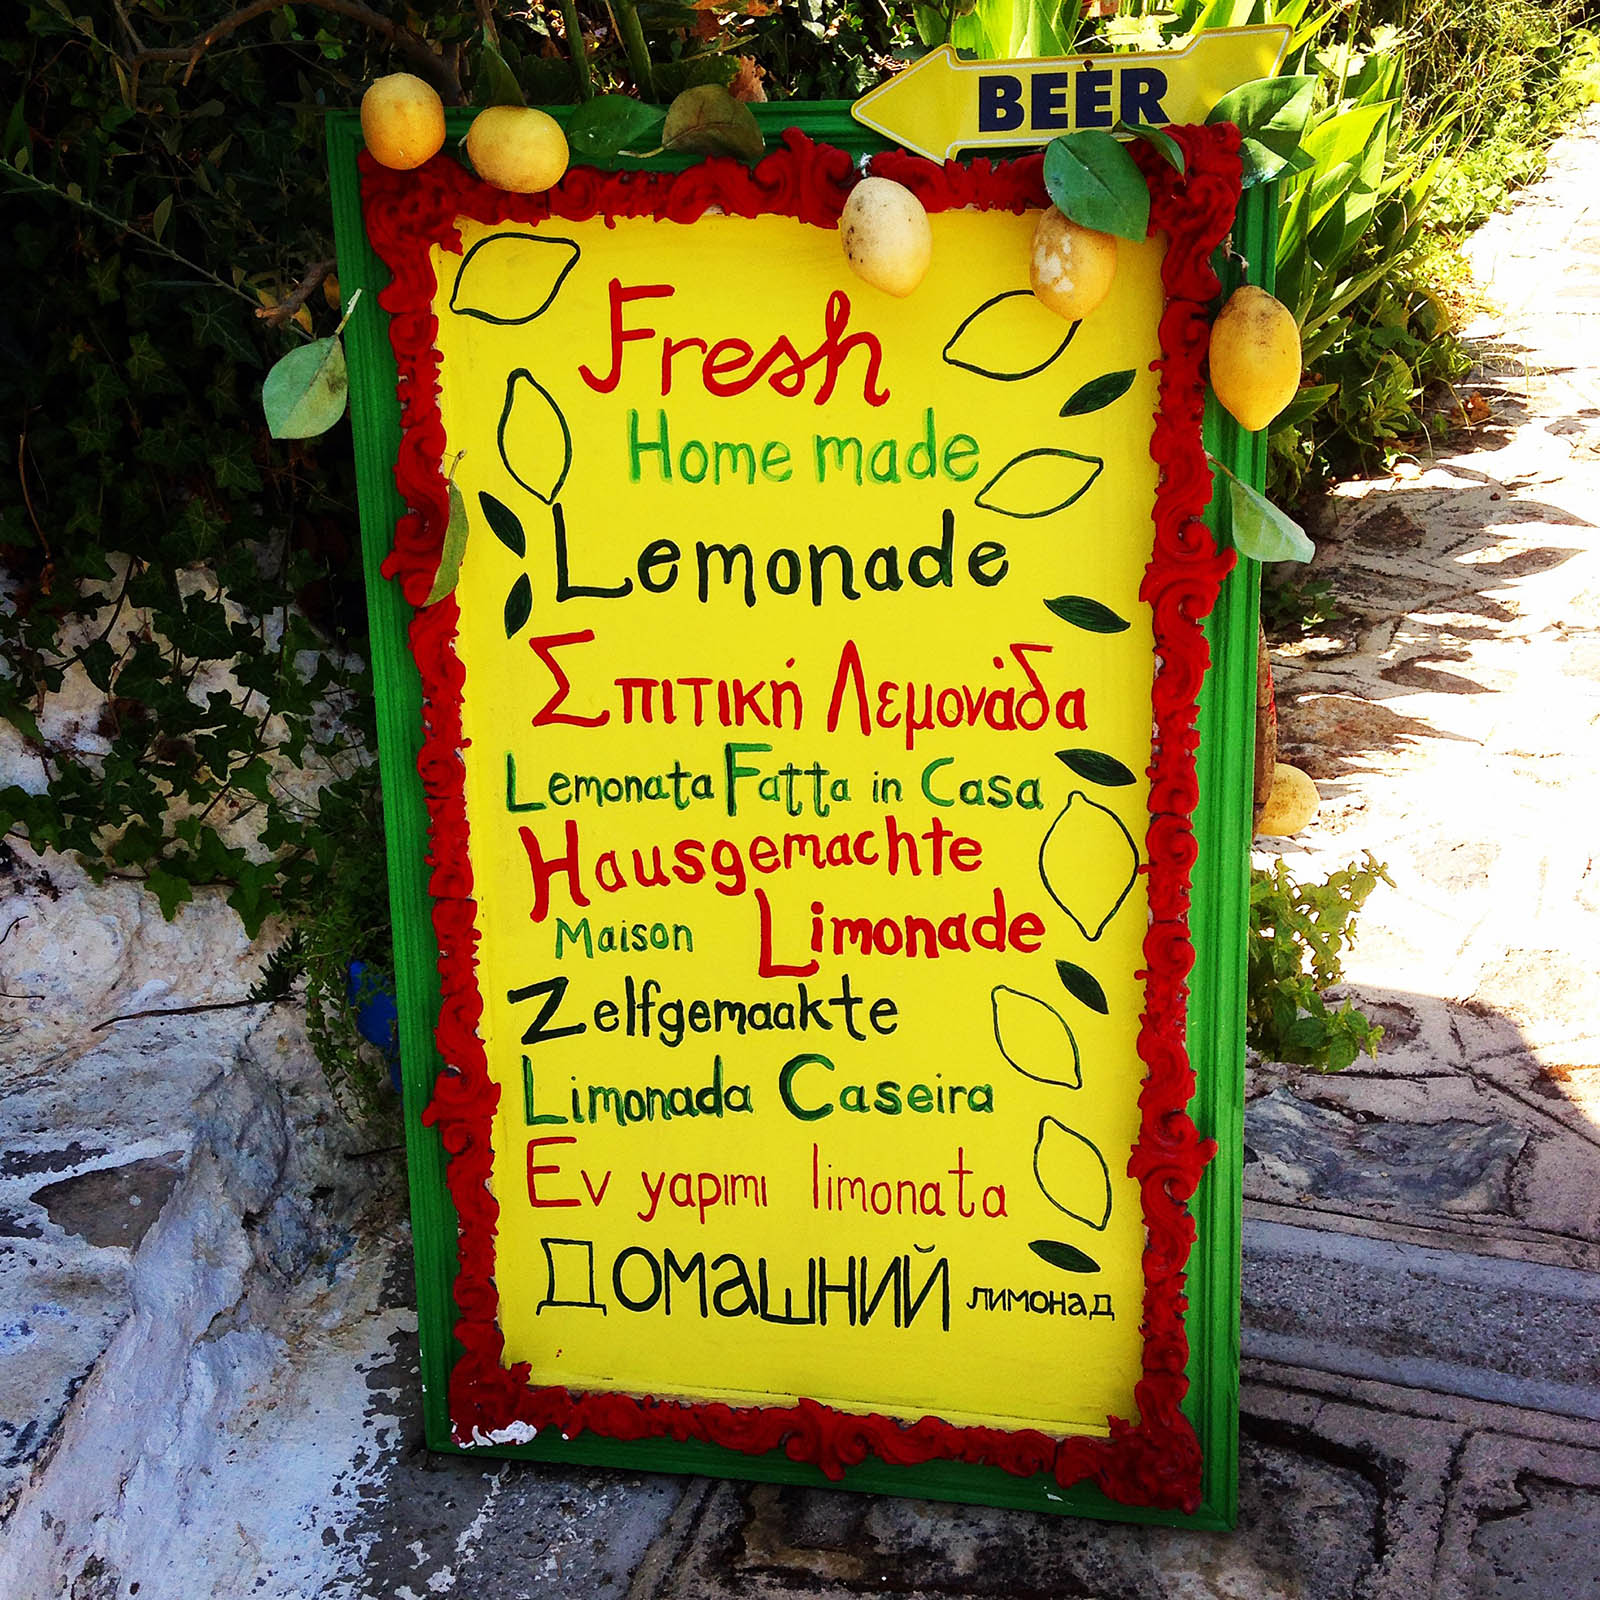 BEER
Fresh
Home made
Lemonade
Σπιτική Λεμονάδα
Lemonata Fatta in Casa
Hausgemachte
Maison Limonade
Zelfgemaakte
Limonada Caseira
Ev yapımı limonata
Домашний лимонад